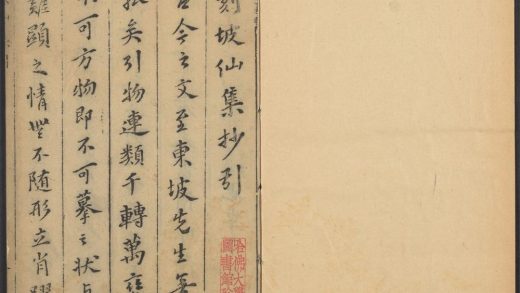 刻坡仙集抄引
古今之文至東坡先生無
矣引物連類千轉萬
可方物即不可摹之狀
難顯之情無不隨形立肖躍
哈佛大
圖書館